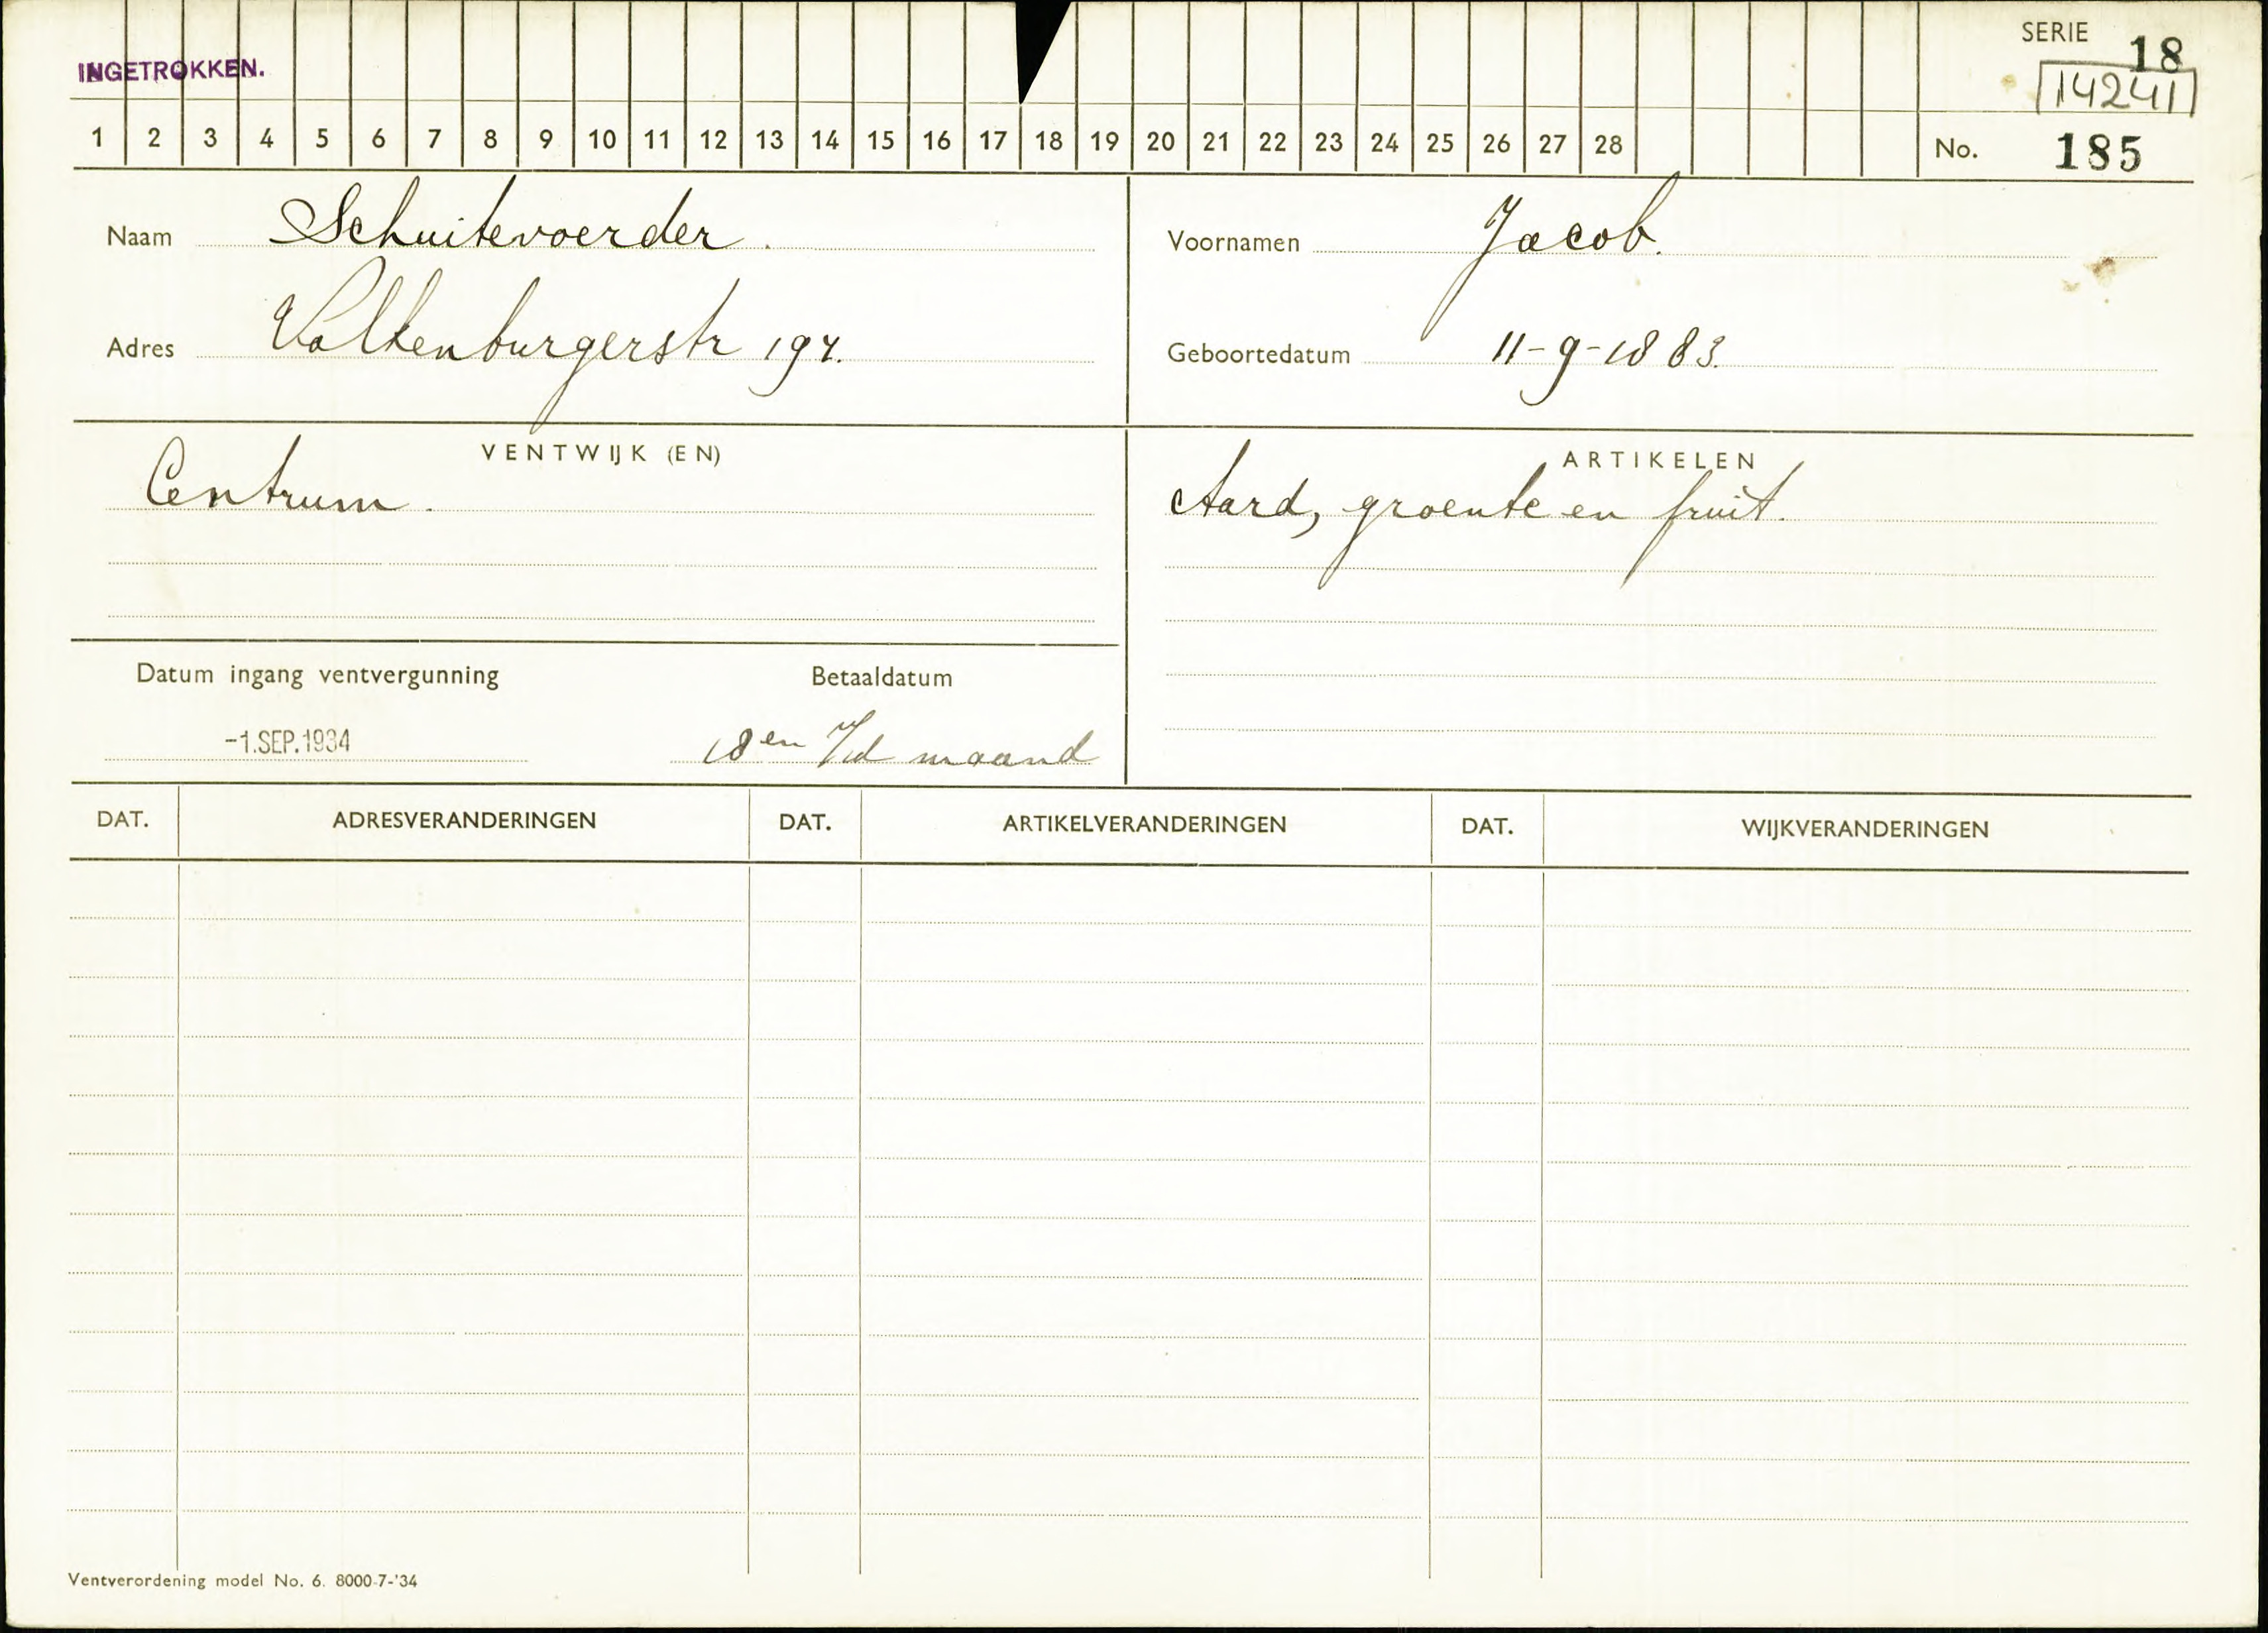 SERIE 18
INGETROKKEN.
14241
1 2 3 4 5 6 7 8 9 10 11 12 13 14 15 16 17 18 19 20 21 22 23 24 25 26 27 28
No. 185
Naam Schuitevoerder.
Voornamen Jacob.
Adres Valkenburgerstr
Geboortedatum 11-9-1883.
VENTWIJK (EN)
Centrum.
ARTIKELEN
Aard, groente en fruit.
Datum ingang ventvergunning
Betaaldatum
-1.SEP.1934
18en v/d maand
DAT. ADRESVERANDERINGEN DAT. ARTIKELVERANDERINGEN DAT. WIJKVERANDERINGEN
Ventverordening model No. 6. 8000-7-'34